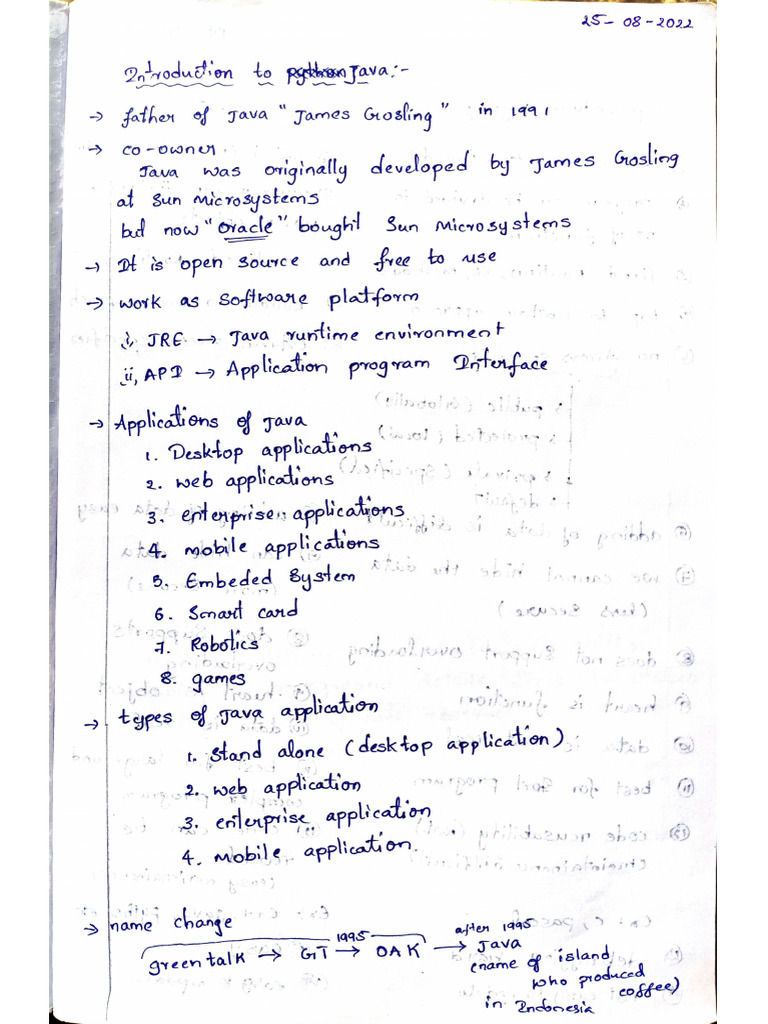 25-08-2022
Introduction to python Java:-
→ father of Java "James Gosling" in 1991
→ co-owner
Java was originally developed by James Gosling
at Sun Microsystems
but now "Oracle" bought Sun Microsystems
→ It is open source and free to use
→ work as software platform
i, JRE → Java runtime environment
ii, API → Application program Interface
→ Applications of Java
1. Desktop applications
2. web applications
3. enterprise applications
4. mobile applications
5. Embeded System
6. Smart card
7. Robotics
8. games
→ types of Java application
1. Stand alone (desktop application)
2. web application
3. enterprise application
4. mobile application.
→ name change
greentalk → GT → 1995 OAK → after 1995 Java
(name of island
who produced
coffee)
in Indonesia